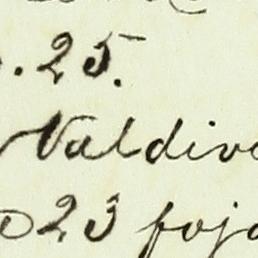 . 25.
Valdiv
23 foja